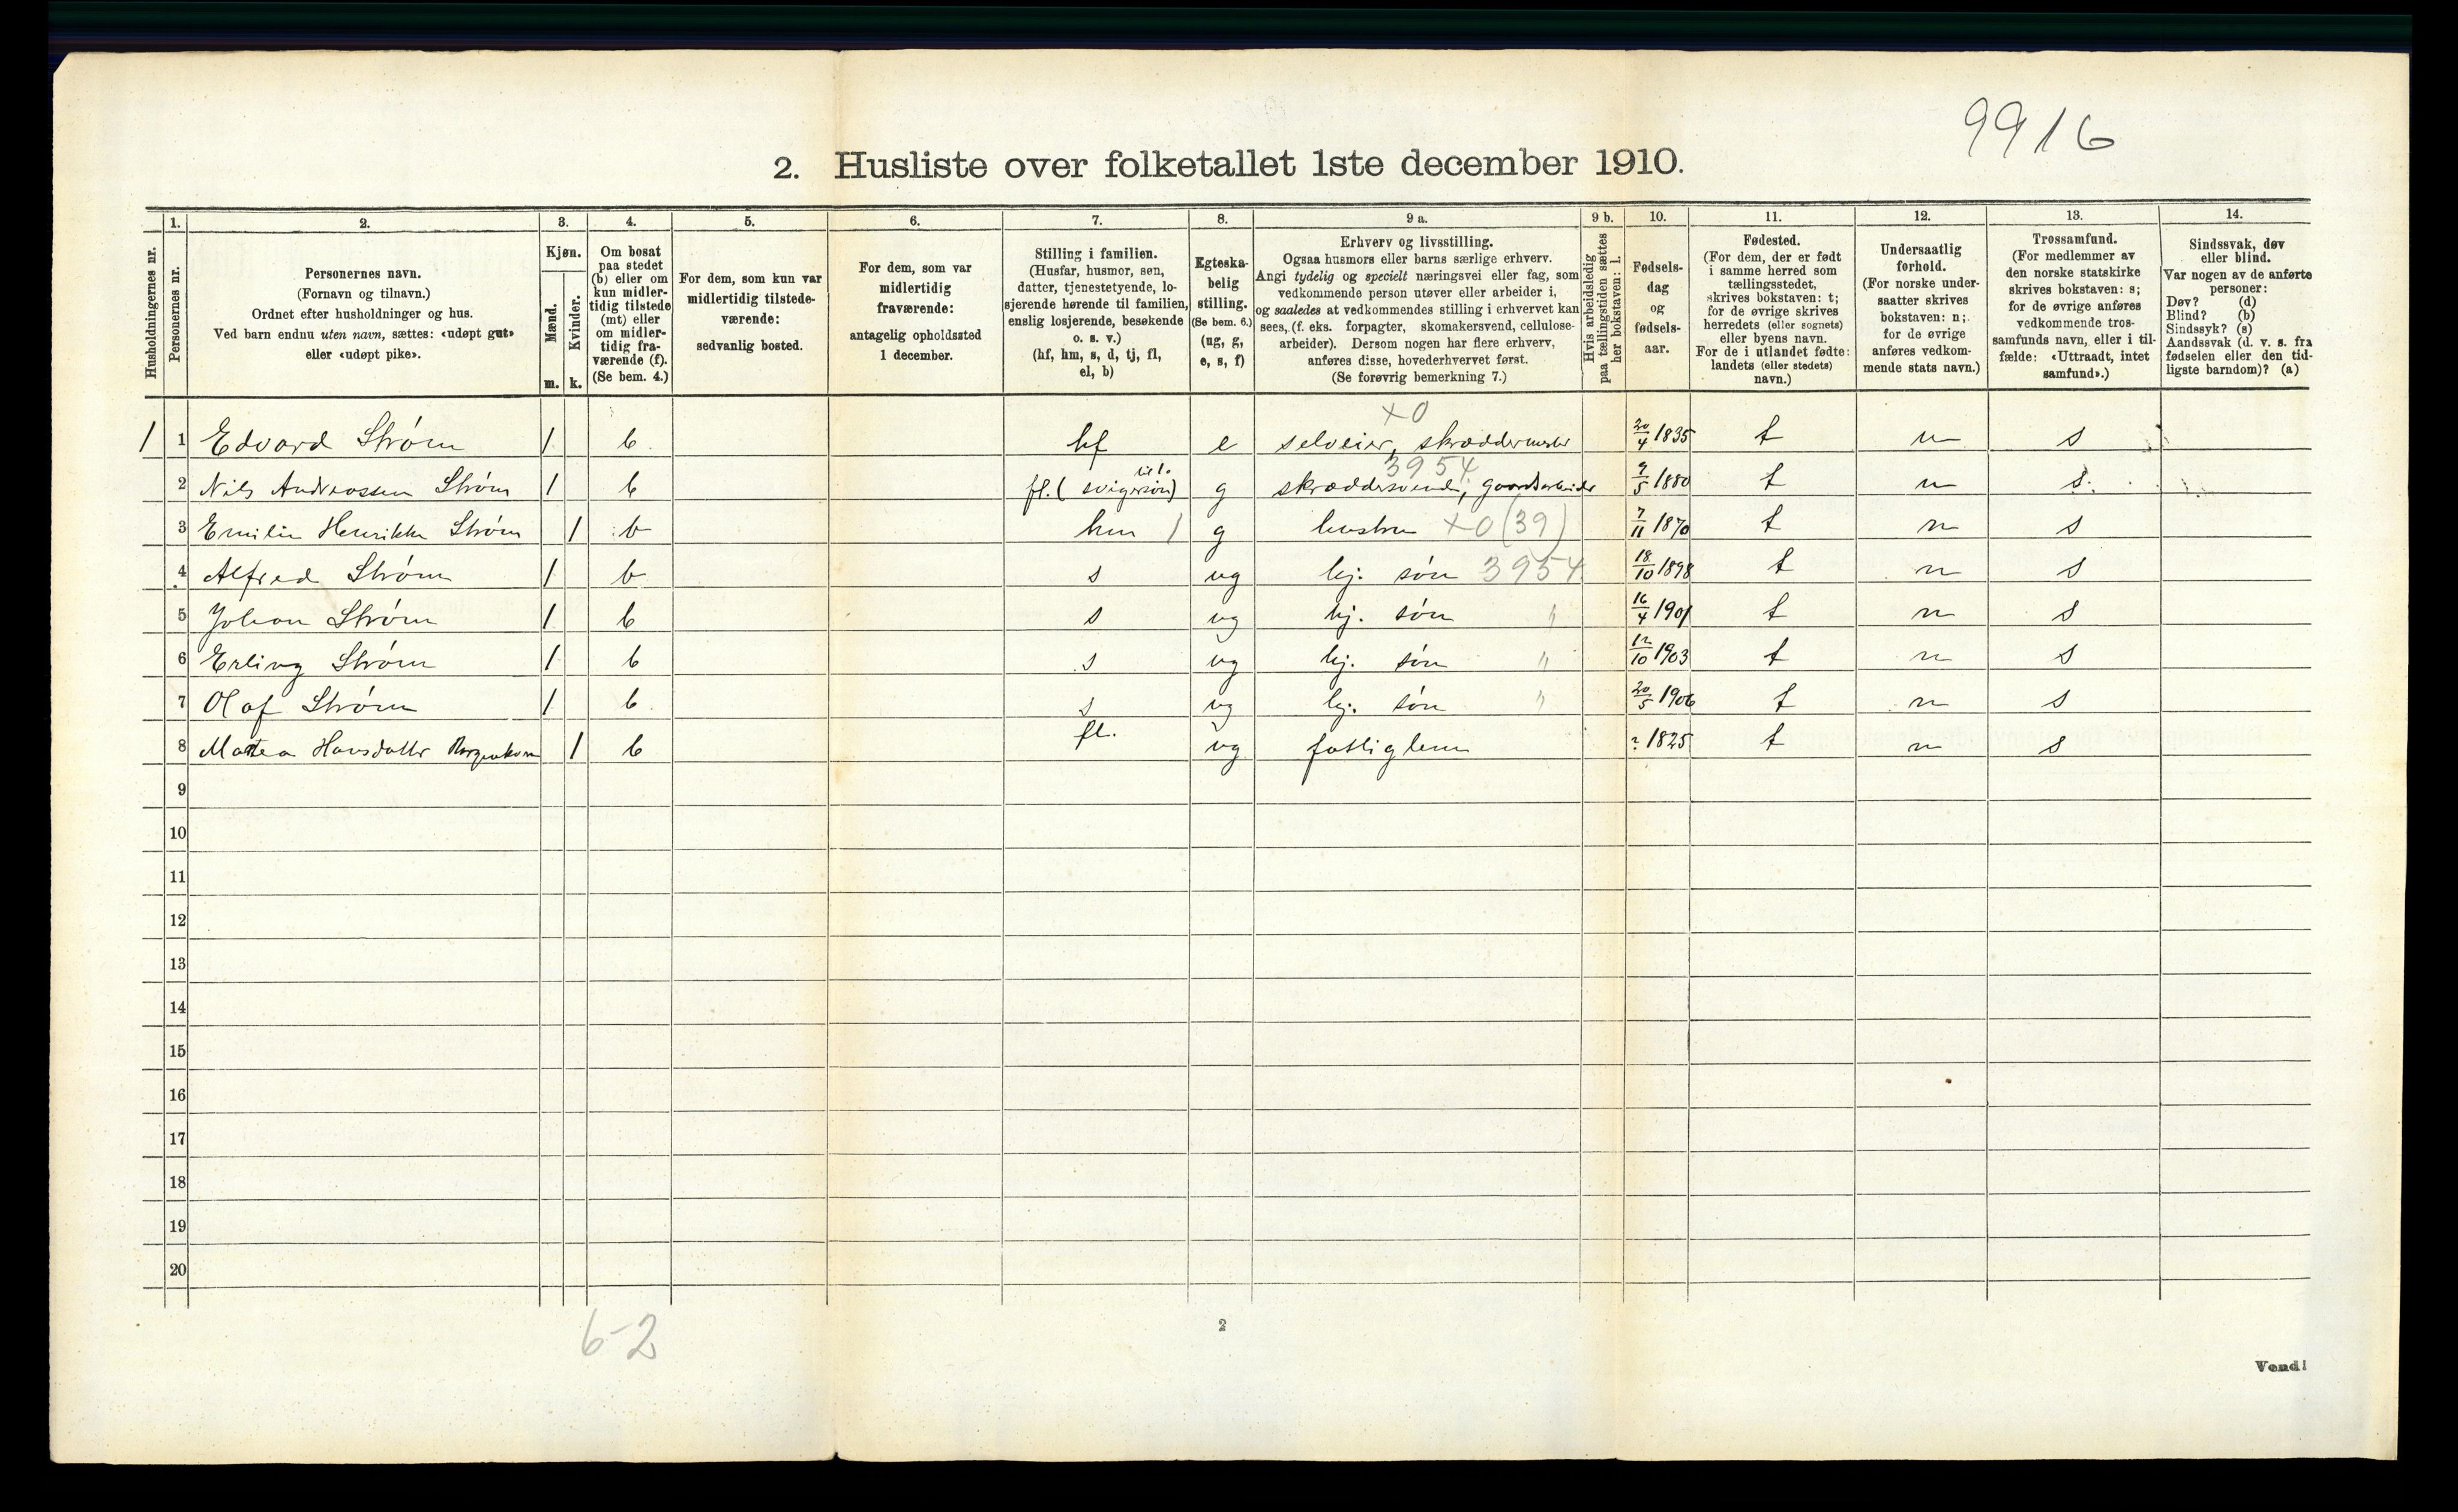 9916
2. Husliste over folketallet 1ste december 1910.
Husholdningernes nr.
1. Personernes nr.
2. Personernes navn.
(Fornavn og tilnavn.)
Ordnet efter husholdninger og hus.
Ved barn endnu uten navn, sættes: «udøpt gut»
eller «udøpt pike».
3. Kjøn.
Mænd. m.
Kvinder. k.
4. Om bosat
paa stedet
(b) eller om
kun midler-
tidig tilstede
(mt) eller
om midler-
tidig fra-
værende (f).
(Se bem. 4.)
5. For dem, som kun var
midlertidig tilstede-
værende:
sedvanlig bosted.
6. For dem, som var
midlertidig
fraværende:
antagelig opholdssted
1 december.
7. Stilling i familien.
(Husfar, husmor, søn,
datter, tjenestetyende, lo-
sjerende hørende til familien,
enslig losjerende, besøkende
o. s. v.)
(hf, hm, s, d, tj, fl,
el, b)
8. Egteska-
belig
stilling.
(Se bem. 6.)
(ug, g,
e, s, f)
9 a. Erhverv og livsstilling.
Ogsaa husmors eller barns særlige erhverv.
Angi tydelig og specielt næringsvei eller fag, som
vedkommende person utøver eller arbeider i,
og saaledes at vedkommendes stilling i erhvervet kan
sees, (f. eks. forpagter, skomakersvend, cellulose-
arbeider). Dersom nogen har flere erhverv,
anføres disse, hovederhvervet først.
(Se forøvrig bemerkning 7.)
9 b. Hvis arbeidsledig
paa tællingstiden sættes
her bokstaven: l.
10. Fødsels-
dag
og
fødsels-
aar.
11. Fødested.
(For dem, der er født
i samme herred som
tællingsstedet,
skrives bokstaven: t;
for de øvrige skrives
herredets (eller sognets)
eller byens navn.
For de i utlandet fødte:
landets (eller stedets)
navn.)
12. Undersaatlig
forhold.
(For norske under-
saatter skrives
bokstaven: n;
for de øvrige
anføres vedkom-
mende stats navn.)
13. Trossamfund.
(For medlemmer av
den norske statskirke
skrives bokstaven: s;
for de øvrige anføres
vedkommende tros-
samfunds navn, eller i til-
fælde: «Uttraadt, intet
samfund».)
14. Sindssvak, døv
eller blind.
Var nogen av de anførte
personer:
Døv? (d)
Blind? (b)
Sindssyk? (s)
Aandssvak (d. v. s. fra
fødselen eller den tid-
ligste barndom)? (a)
+0
1 1 Edvard Strøm 1 b hf e selveier, skræddermester 20/4 1835 t n s
til 1.
3954
2 Nils Andreassen Strøm 1 b fl. (svigersøn) g skræddersvend, gaardsarbeider 9/5 1880 t n s
3 Emilie Henrikke Strøm 1 b hm 1 g hustru +0 (39) 7/11 1870 t n s
4 Alfred Strøm 1 b s ug hj. søn 3954 18/10 1898 t n s
5 Johan Strøm 1 b s ug hj. søn " 16/4 1901 t n s
6 Erling Strøm 1 b s ug hj. søn " 12/10 1903 t n s
7 Olaf Strøm 1 b s ug hj. søn " 20/5 1906 t n s
8 Martea Hansdatter 1 b fl. ug fattiglem ? 1825 t n s
9
10
11
12
13
14
15
16
17
18
19
20
6-2
2
Vend!